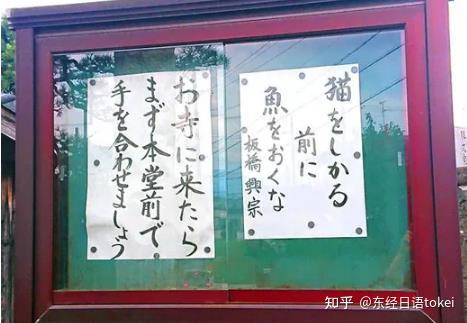 猫をしかる
前に
魚をおくな
板橋興宗
お寺に来たら
まず本堂前で
手を合わせましょう
知乎 @东经日语tokei